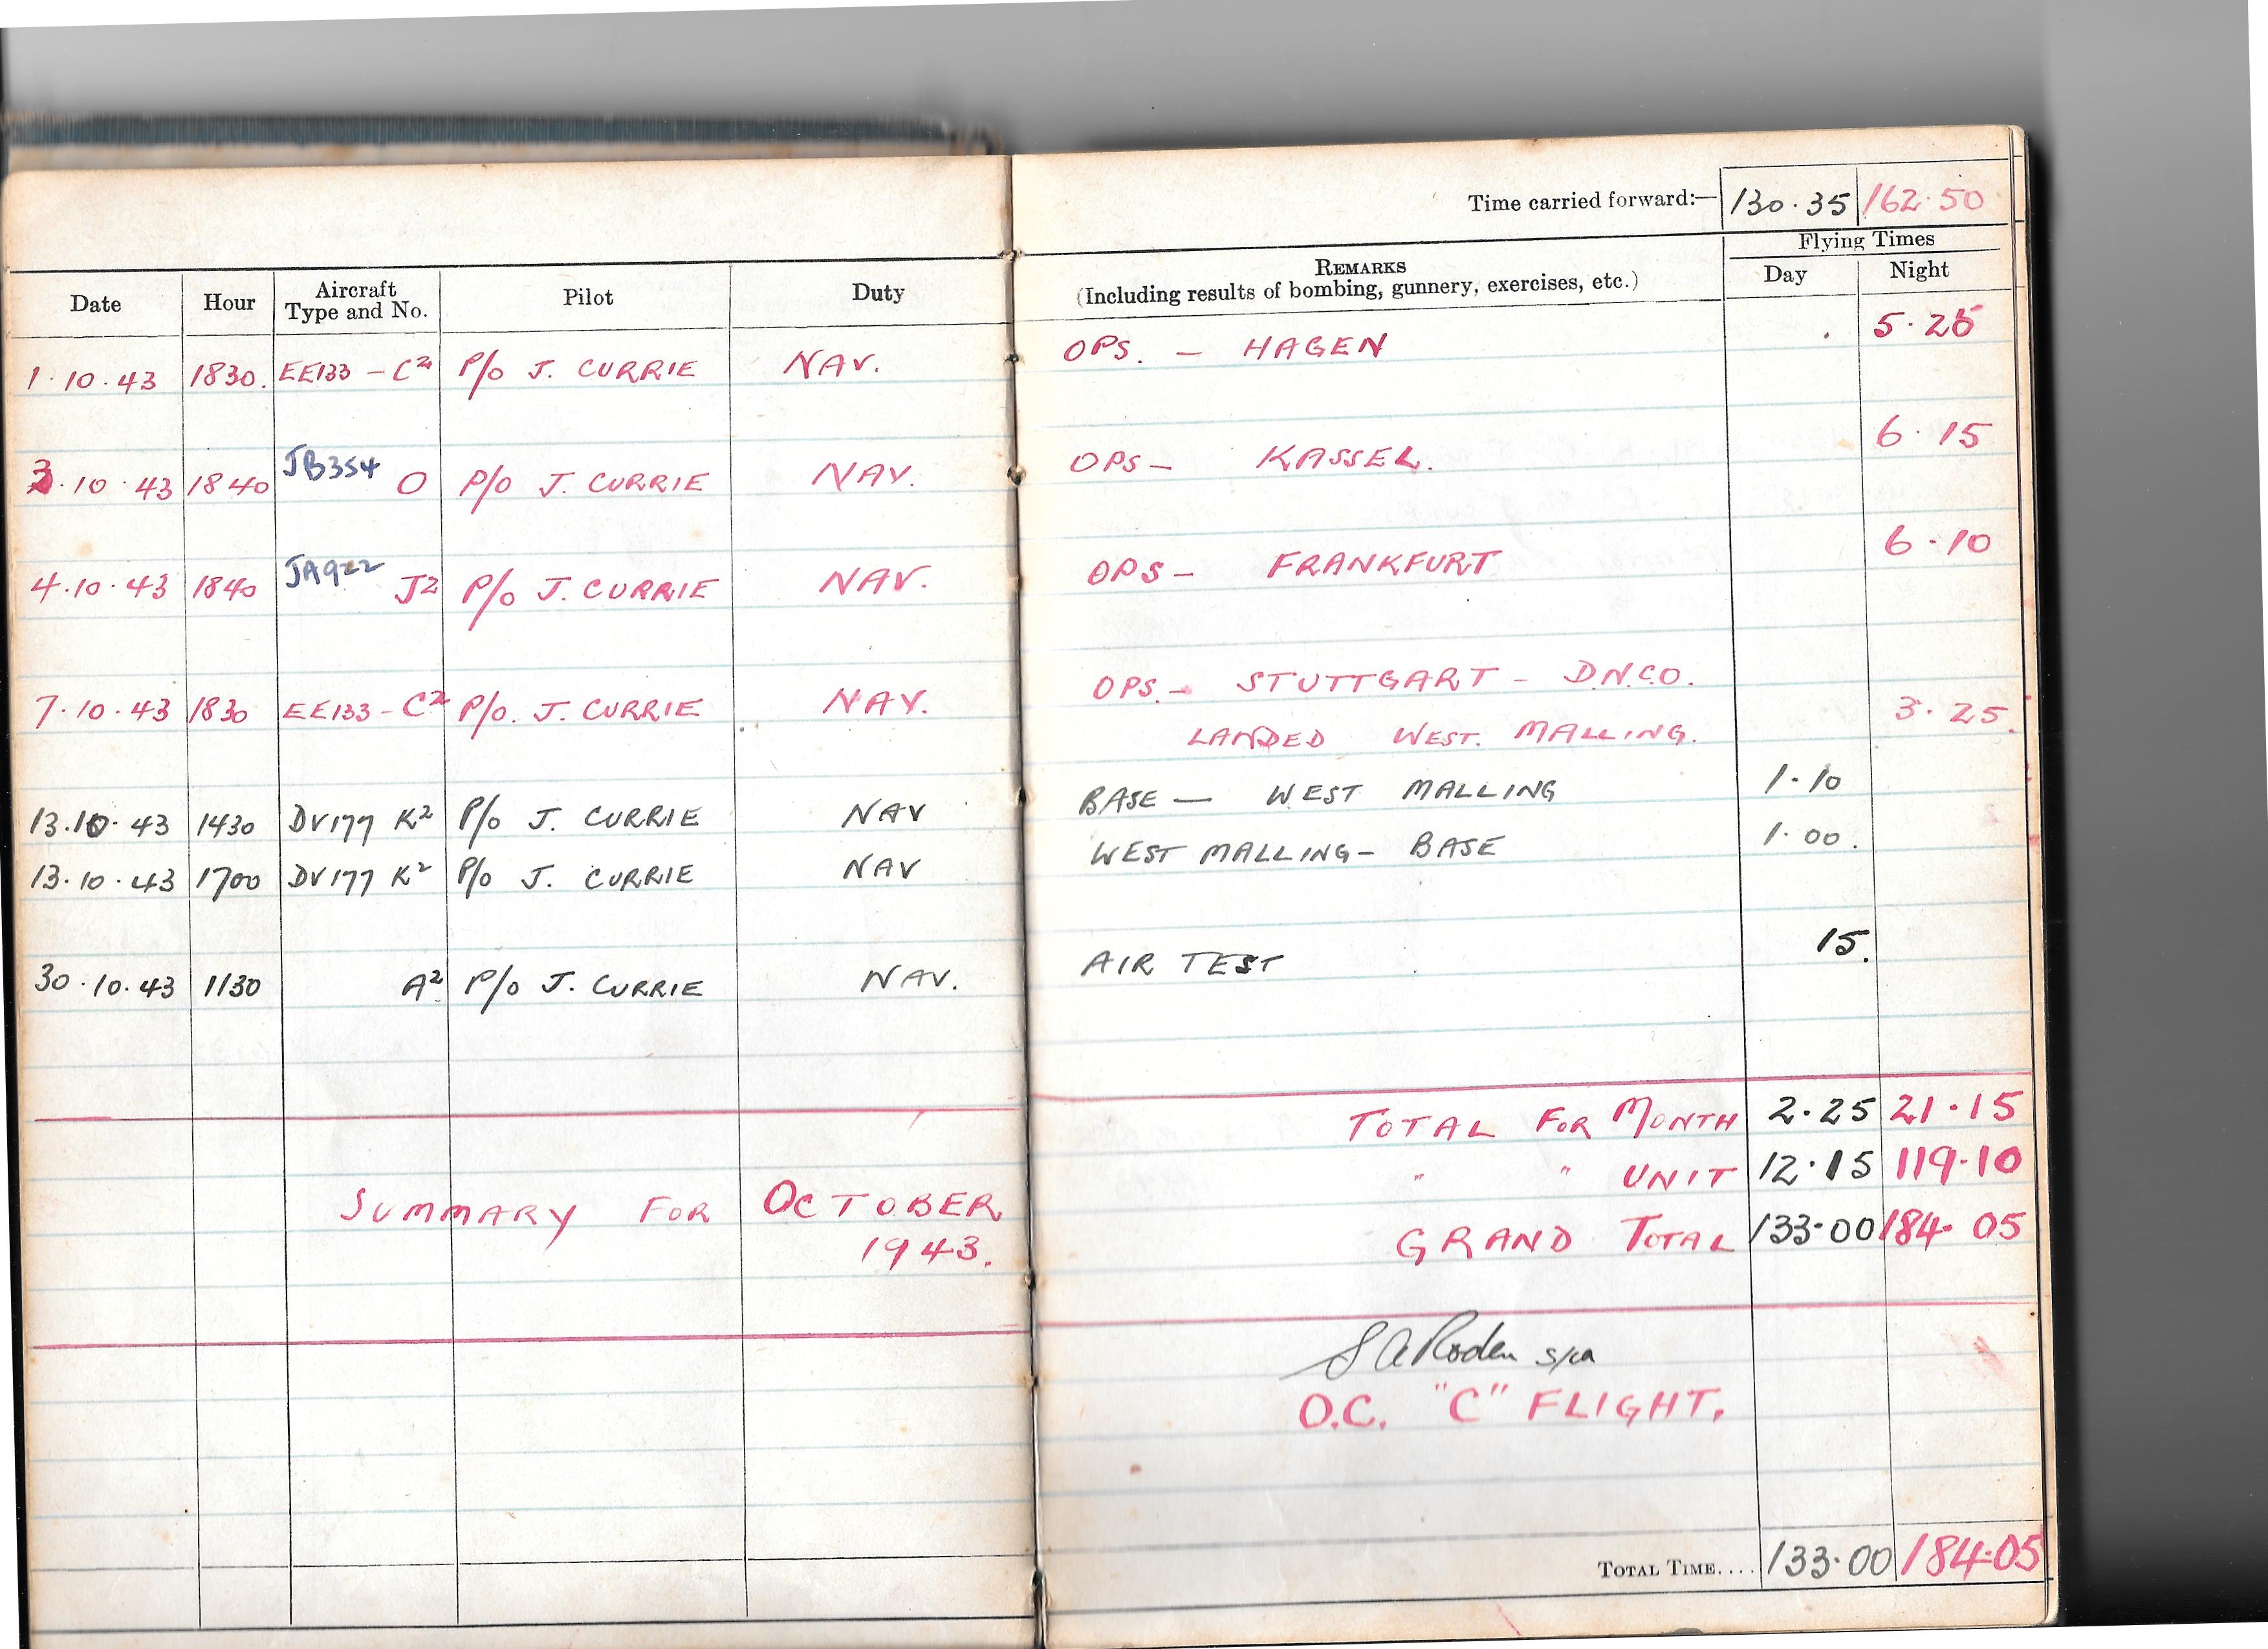 Time carried forward:— 130·35 162·50
Flying Times
Date Hour Aircraft Type and No. Pilot Duty REMARKS (Including results of bombing, gunnery, exercises, etc.) Day Night
1·10·43 1830. EE133 – C2 P/o J. CURRIE NAV. OPS. – HAGEN 5·25
3·10·43 1840 JB354 O P/O J. CURRIE NAV. OPS – KASSEL. 6·15
4·10·43 1840 JA922 J2 P/o J. CURRIE NAV. OPS – FRANKFURT 6·10
7·10·43 1830 EE133 – C2 P/o. J. CURRIE NAV. OPS. – STUTTGART – D.N.C.O.
LANDED WEST. MALLING. 3·25.
13.10·43 1430 DV177 K2 P/o J. CURRIE NAV BASE — WEST MALLING 1·10
13·10·43 1700 DV177 K2 P/o J. CURRIE NAV WEST MALLING – BASE 1·00.
30·10·43 1130 A2 P/o J. CURRIE NAV. AIR TEST 15.
TOTAL FOR MONTH 2·25 21·15
" " UNIT 12·15 119·10
SUMMARY FOR OCTOBER
1943.
GRAND TOTAL 133·00 184·05
S A Roden S/LDR
O.C. "C" FLIGHT.
TOTAL TIME.... 133·00 184·05